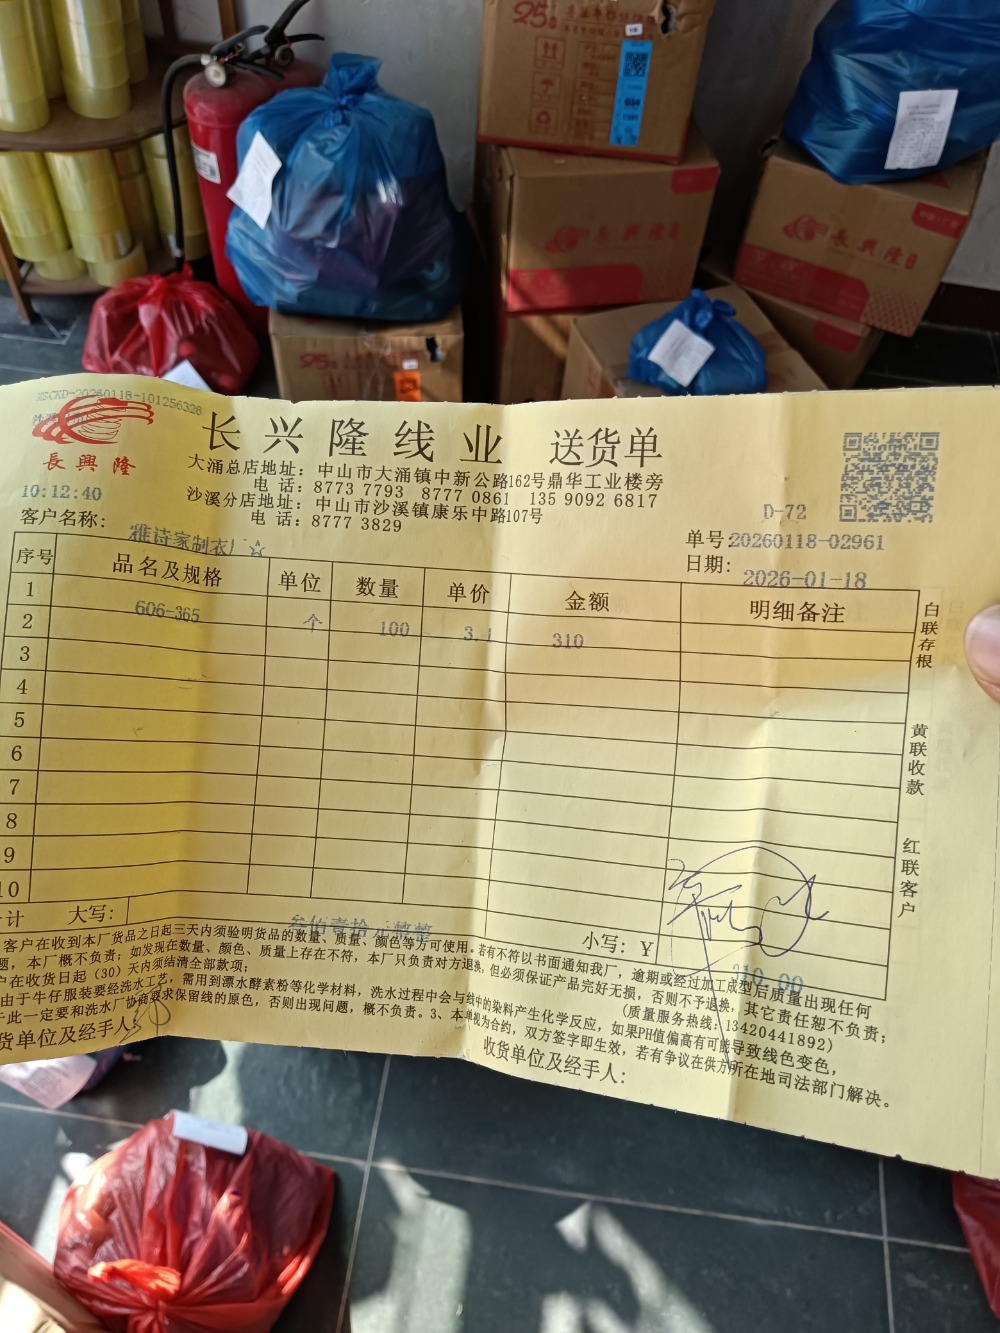 長興隆
長興隆
XSCKD-20260118-101256326
長興隆
10:12:40
长兴隆线业 送货单
大涌总店地址：中山市大涌镇中新公路162号鼎华工业楼旁
电 话：8773 7793 8777 0861 135 9092 6817
沙溪分店地址：中山市沙溪镇康乐中路107号
电 话：8777 3829
D-72
单号：20260118-02961
日期：2026-01-18
客户名称：雅诗家制衣厂☆
序号 品名及规格 单位 数量 单价 金额 明细备注
1 606-365 个 100 3.1 310
2
3
4
5
6
7
8
9
10
计 大写：叁佰壹拾元整整 小写：Y 310.00
白联存根
黄联收款
红联客户
客户在收到本厂货品之日起三天内须验明货品的数量、质量、颜色等方可使用。若有不符以书面通知我厂，逾期或经过加工成型后质量出现任何
题，本厂概不负责；如发现在数量、颜色、质量上存在不符，本厂只负责对方退换，但必须保证产品完好无损，否则不予退换，其它责任恕不负责；
户在收货日起（30）天内须结清全部款项；
(质量服务热线：13420441892)
由于牛仔服装要经洗水工艺，需用到漂水酵素粉等化学材料，洗水过程中会与线中的染料产生化学反应，如果PH值偏高有可能导致线色变色，
于此一定要和洗水厂协商要求保留线的原色，否则出现问题，概不负责。3、本单视为合约，双方签字即生效，若有争议在供方所在地司法部门解决。
货单位及经手人：
收货单位及经手人：